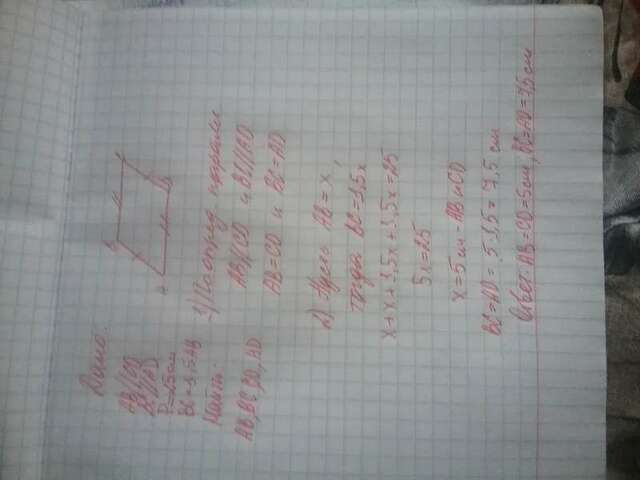 Дано:
AB||CD
BC||AD
P=25см
BC=1,5AB
Найти:
AB, BC, CD, AD
1) По опред. паралл.
AB||CD и BC||AD
AB=CD и BC=AD
2) Пусть AB=x,
тогда BC=1,5x
x+x+1,5x+1,5x=25
5x=25
x=5см - AB и CD
BC=AD=5·1,5=7,5 см
Ответ: AB=CD=5см, BC=AD=7,5см